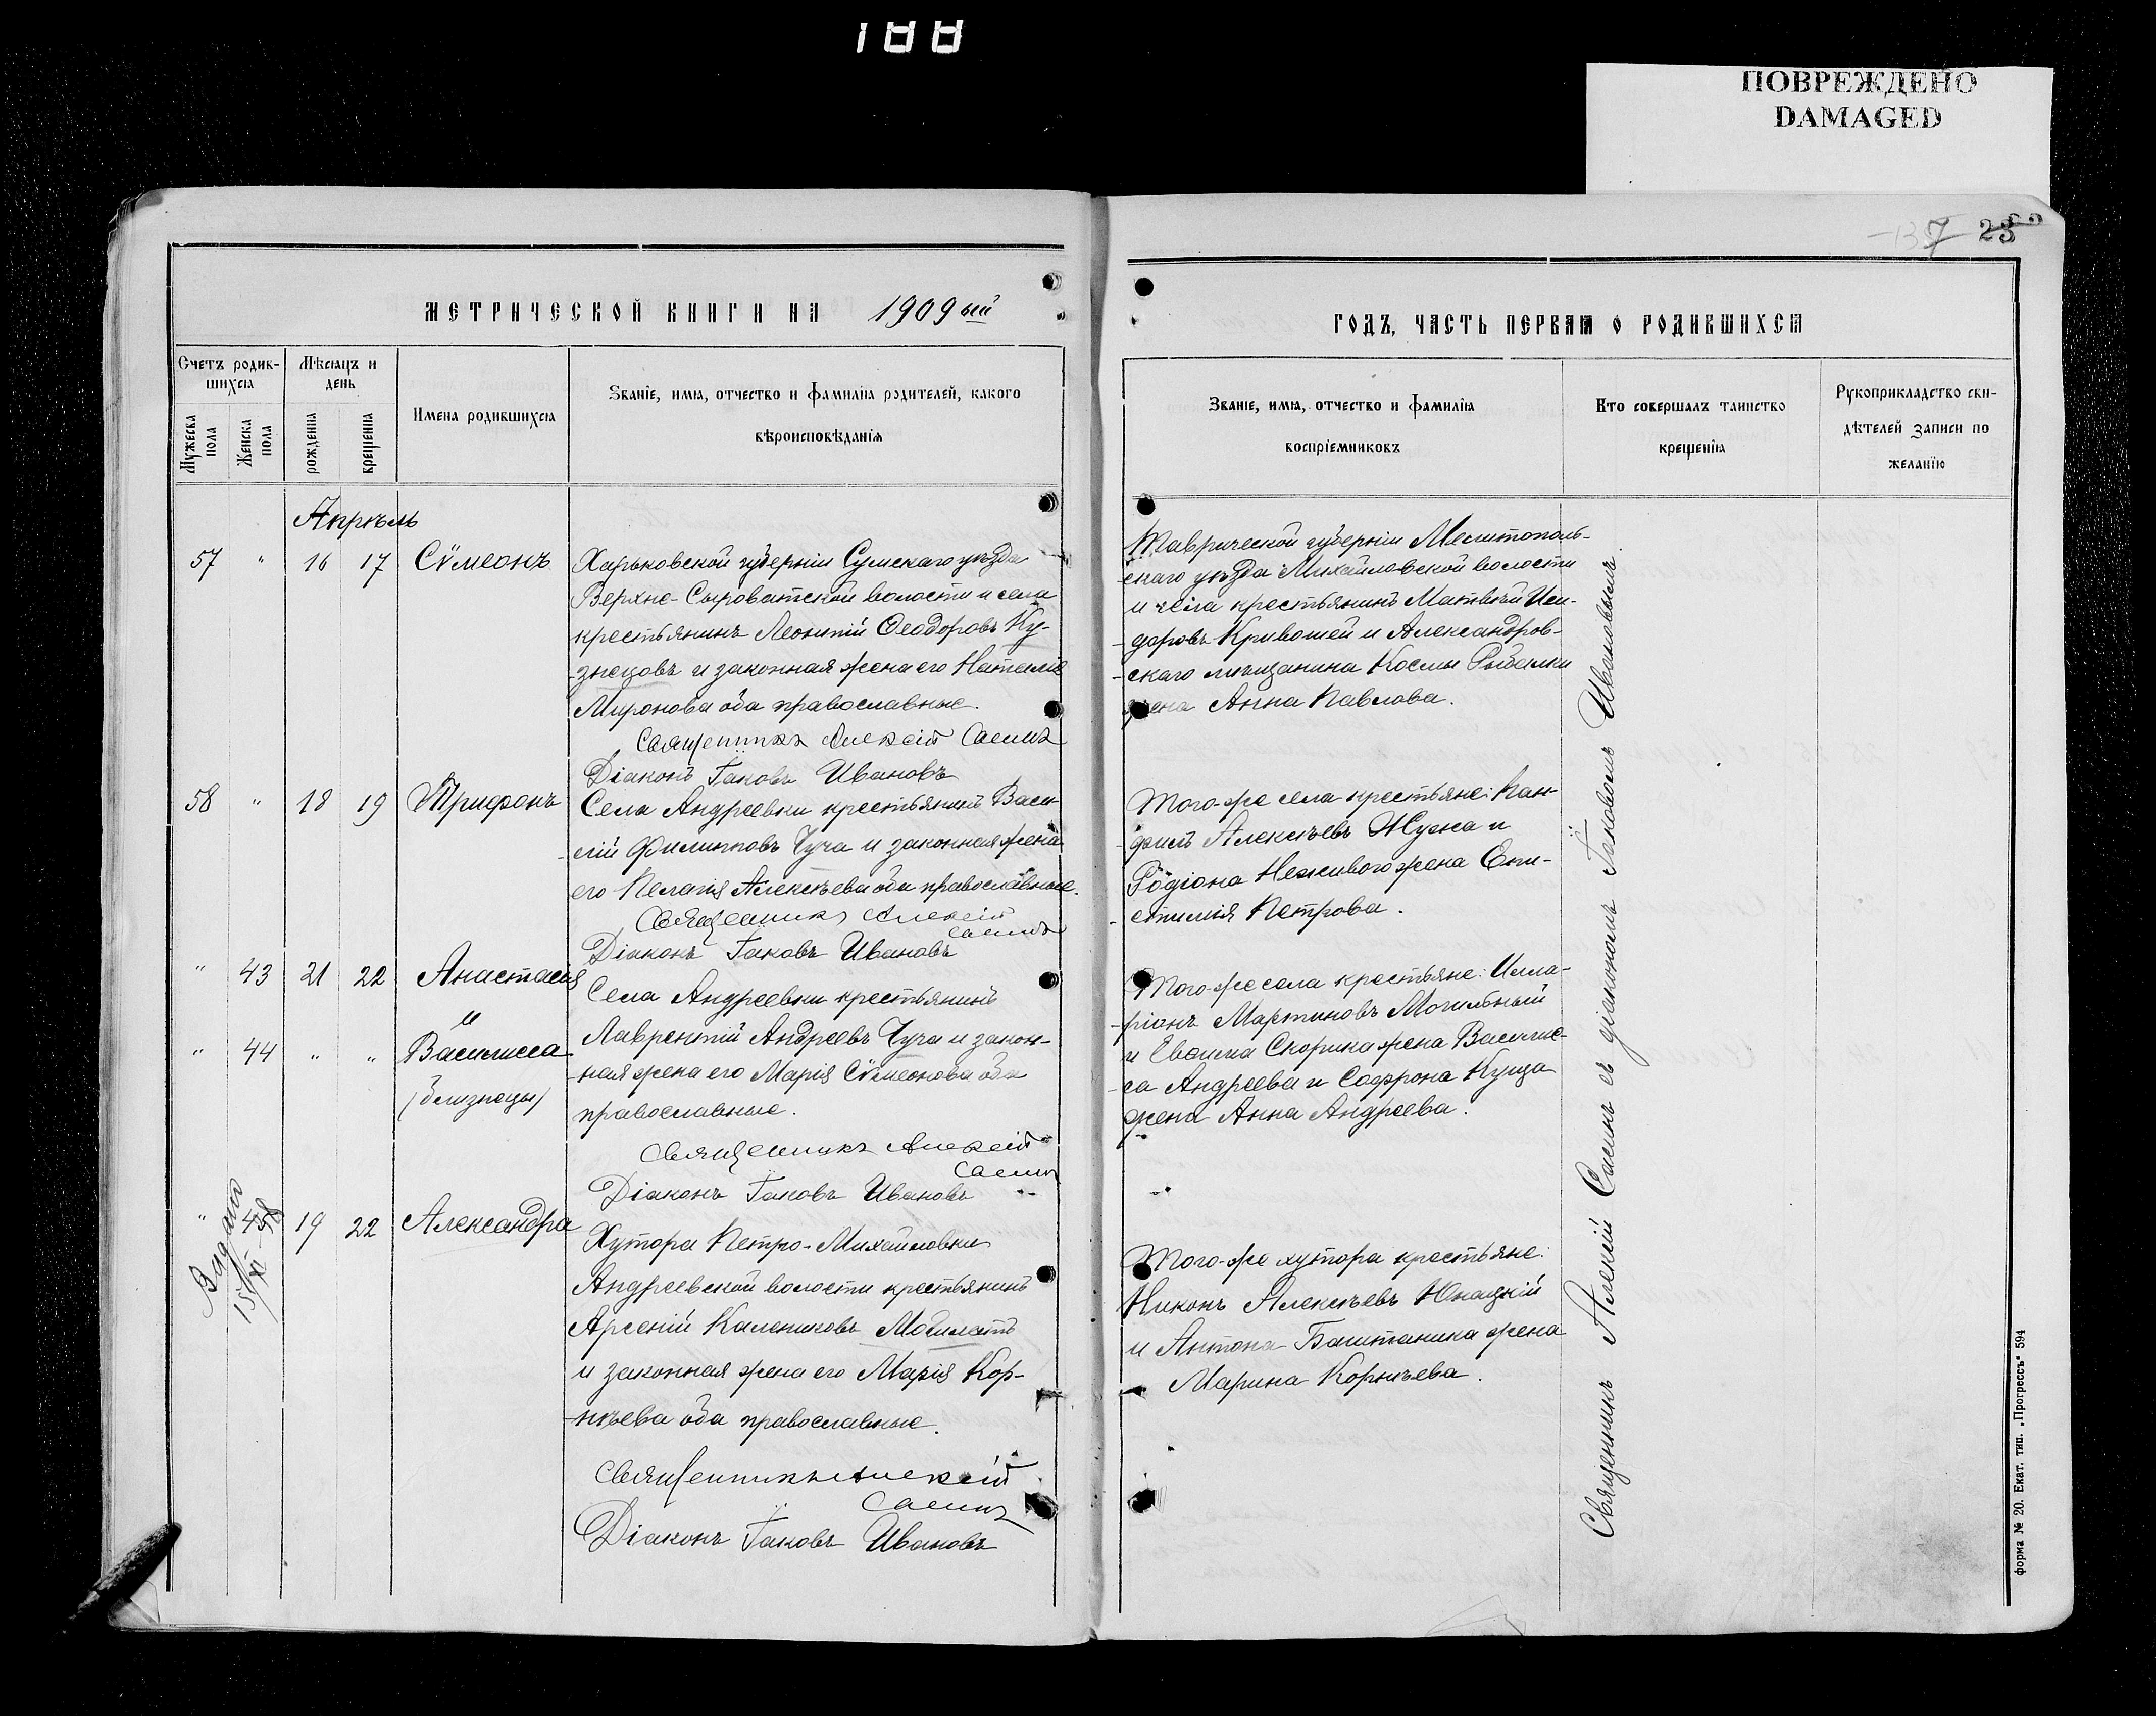 188
ПОВРЕЖДЕНО
DAMAGED
23
МЕТРИЧЕСКОЙ КНИГИ НА 1909ый
ГОДЪ, ЧАСТЬ ПЕРВАЯ О РОДИВШИХСЯ
Счетъ родив-
шихся
Мужеска пола
Женска пола
Мѣсяцъ и
день
рожденія
крещенія
Имена родившихся
Званіе, имя, отчество и фамилія родителей, какого
вѣроисповѣданія
Званіе, имя, отчество и фамилія
воспріемниковъ
Кто совершалъ таинство
крещенія
Рукоприкладство сви-
дѣтелей записи по
желанію
Апрѣль
57 " 16 17 Сѵмеонъ
Харьковской губерніи Сумскаго уѣзда
Верхне-Сыроватской волости и села
крестьянинъ Леонтій Ѳеодоровъ Ку-
-знецовъ и законная жена его Наталія
Миронова оба православные.
Священникъ Алексій Саенъ
Діаконъ Іаковъ Ивановъ
Таврической губерніи Мелитополь-
-скаго уѣзда Михайловской волости
и села крестьянинъ Матвѣй Иси-
-доровъ Кривошей и Александров-
-скаго мѣщанина Космы Рыбалки
жена Анна Павлова.
58 " 18 19 Трифонъ
Села Андреевки крестьянинъ Васи-
-лій Филипповъ Чуча и законная жена
его Пелагія Алексѣева оба православные.
Священникъ Алексій
Саенъ
Діаконъ Іаковъ Ивановъ
Того-же села крестьяне: Кан-
-дитъ Алексѣевъ Жужа и
Родіона Неживого жена Епи-
-стимія Петрова.
" 43 21 22 Анастасія
и
" 44 " " Василисса
(близнецы)
Села Андреевки крестьянинъ
Лаврентій Андреевъ Чуча и закон-
-ная жена его Марія Сѵмеонова оба
православные.
Священникъ Алексій
Саенъ
Діаконъ Іаковъ Ивановъ
Того-же села крестьяне: Илла-
-ріонъ Мартиновъ Могильный
и Евфима Скорика жена Василис-
-са Андреева и Софрона Куща
жена Анна Андреева.
" 45 19 22 Александра
Видано
15/XI-58
Хутора Петро-Михайловки
Андреевской волости крестьянинъ
Арсеній Калениковъ Мовилетъ
и законная жена его Марія Кор-
-нѣева оба православные.
Священникъ Алексій
Саенъ
Діаконъ Іаковъ Ивановъ
Того-же хутора крестьяне:
Никонъ Алексѣевъ Юнацкій
и Антона Баштаника жена
Марина Корнѣева.
Священникъ Алексій Саенъ съ діакономъ Іаковомъ Ивановымъ
форма № 20. Екат. тип. „Прогрессъ" 594